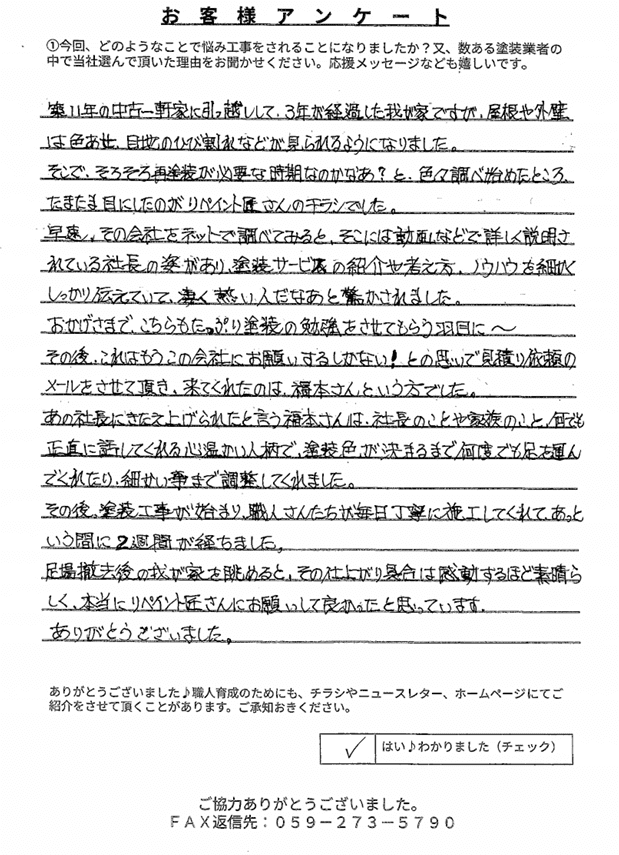 お客様アンケート
①今回、どのようなことで悩み工事をされることになりましたか？又、数ある塗装業者の
中で当社選んで頂いた理由をお聞かせください。応援メッセージなども嬉しいです。
築11年の中古一軒家に引っ越しして、3年が経過した我が家ですが、屋根や外壁
は色あせ、目地のひび割れなどが見られるようになりました。
そこで、そろそろ再塗装が必要な時期なのかなあ？と、色々調べ始めたところ、
たまたま目にしたのがリペイント匠さんのチラシでした。
早速、その会社をネットで調べてみると、そこには動画などで詳しく説明さ
れている社長の姿があり、塗装サービスの紹介や考え方、ノウハウを細かく
しっかり伝えていて、凄く熱い人だなあと驚かされました。
おかげさまで、こちらもたっぷり塗装の勉強をさせてもらう羽目に〜
その後、これはもうこの会社にお願いするしかない！との思いで見積り依頼の
メールをさせて頂き、来てくれたのは、福本さんという方でした。
あの社長にきたえ上げられたと言う福本さんは、社長のことや家族のこと、何でも
正直に話してくれる心温かい人柄で、塗装色が決まるまで何度でも足を運ん
でくれたり、細せい事まで調整してくれました。
その後、塗装工事が始まり、職人さんたちが毎日丁寧に施工してくれて、あっと
いう間に2週間が経ちました。
足場撤去後の我が家を眺めると、その仕上がり具合は感動するほど素晴ら
しく、本当にリペイント匠さんにお願いして良かったと思っています.
ありがとうございました。
ありがとうございました♪職人育成のためにも、チラシやニュースレター、ホームページにてご
紹介をさせて頂くことがあります。ご承知おきください。
✓ はい♪わかりました（チェック）
ご協力ありがとうございました。
ＦＡＸ返信先：０５９－２７３－５７９０